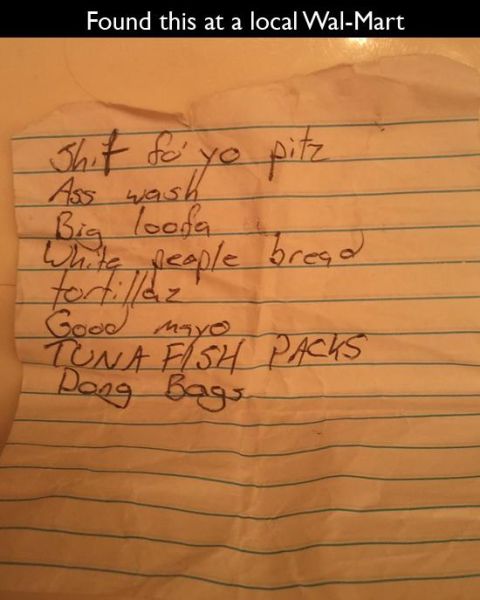 Found this at a local Wal-Mart
Shit fo' yo pitz
Ass wash
Big loofa
White people bread
tortillaz
Good mayo
TUNA FISH PACKS
Dong Bags